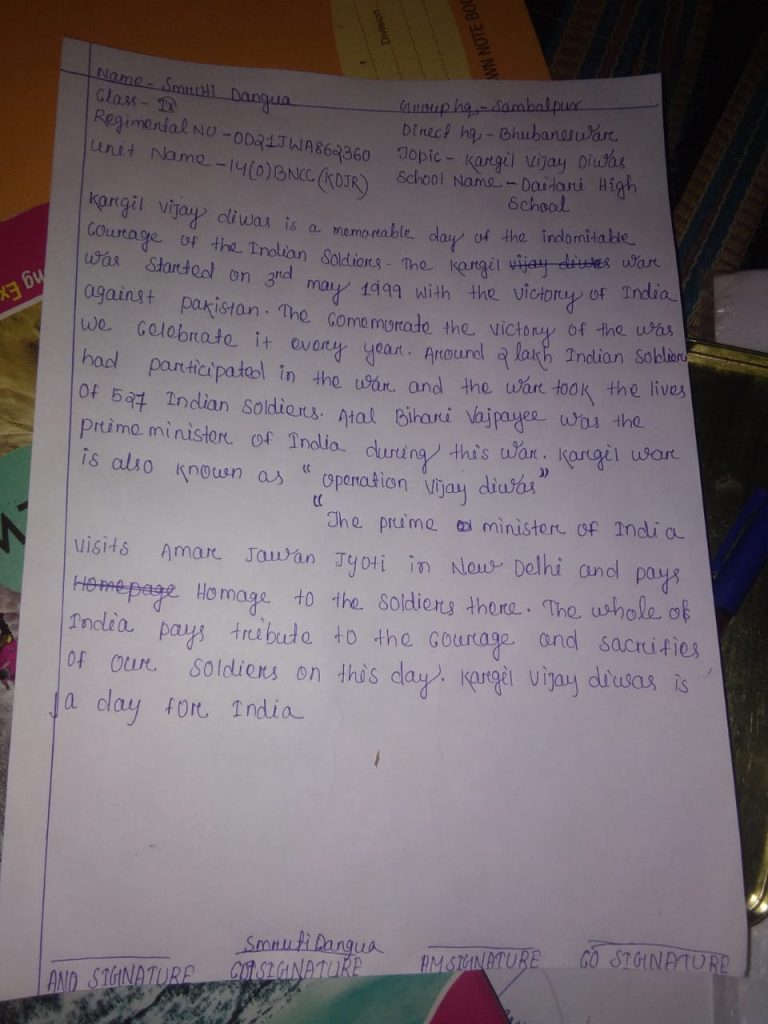 Division
WN NOTE BOO
ng Ex
Name - Smruti Dangua
Class - IX
Regimental NO - OD21JWA862360
Unit Name - 14(O)BNCC (KDJR)
Group hq - Sambalpur
Direct hq - Bhubaneswar
Topic - Kargil Vijay Diwas
School Name - Daitari High
School
Kargil Vijay diwas is a memoreable day of the indomitable
Courage of the Indian Soldiers. The Kargil vijay diwas war
was started on 3rd may 1999 with the victory of India
against pakistan. The Comemorate the victory of the was
we Celebrate it every year. Around 2 lakh Indian Soldiers
had participated in the war and the war took the lives
of 527 Indian Soldiers. Atal Bihari Vajpayee was the
prime minister of India during this war. Kargil war
is also known as "operation Vijay diwas"
"The prime minister of India
visits Amar Jawan Jyoti in New Delhi and pays
Homepage Homage to the soldiers there. The whole of
India pays tribute to the Courage and sacrifies
of our soldiers on this day. Kargil Vijay diwas is
a day for India
Smruti Dangua
AND SIGNATURE CDT SIGNATURE AM SIGNATURE CO SIGNATURE